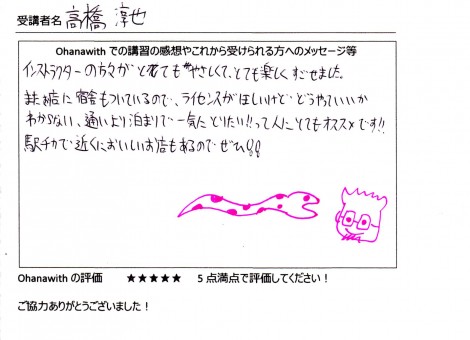 受講者名 高橋 淳也
Ohanawith での講習の感想やこれから受けられる方へのメッセージ等
インストラクターの方々がとてもやさしくて、とても楽しくすごせました。
また店に宿舎もついているので、ライセンスがほしいけどどうやっていいか
わからない、通いより泊まりで一気にとりたい!!って人にとてもオススメです!!
駅チカで近くにおいしいお店もあるのでぜひ!!
Ohanawith の評価 ★★★★★ 5 点満点で評価してください！
ご協力ありがとうございました！